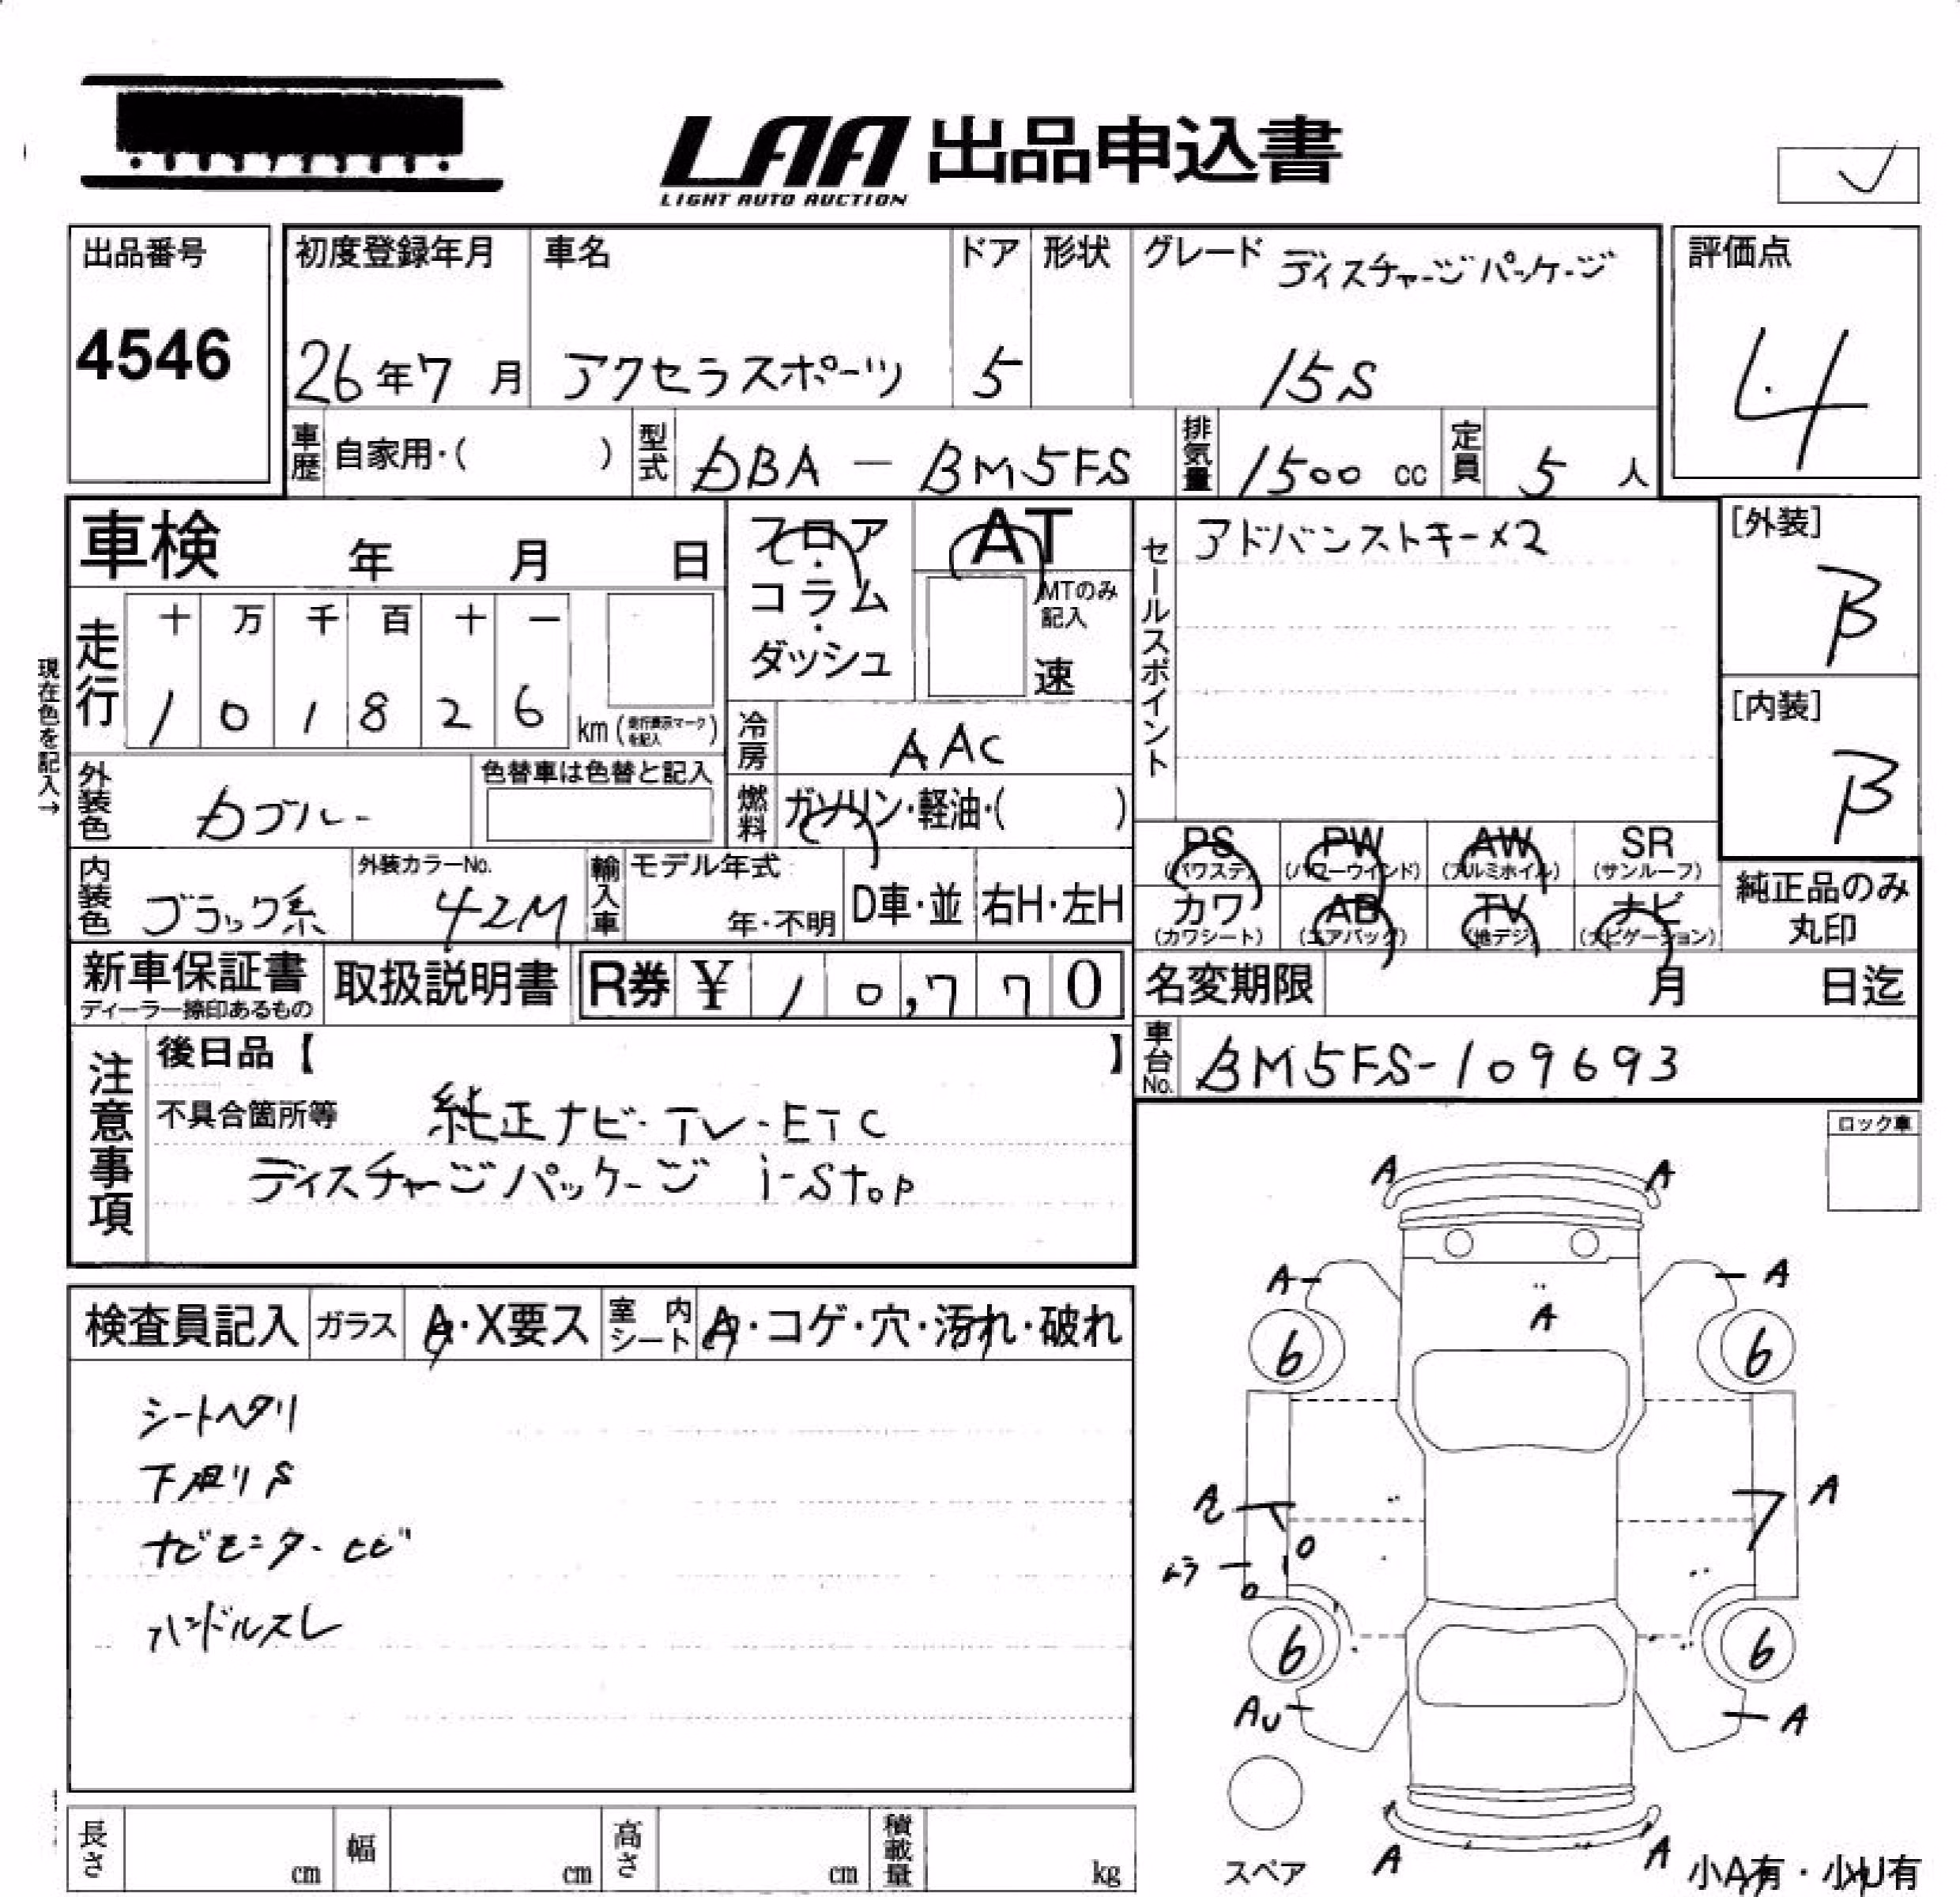 LAA 出品申込書
LIGHT AUTO AUCTION
出品番号
4546
初度登録年月
26年7月
車名
アクセラスポーツ
ドア
5
形状
グレード ディスチャージパッケージ
15S
評価点
4
車歴 自家用・( )
型式 DBA - BM5FS
排気量 1500 cc
定員 5 人
車検 年 月 日
フロア・コラム・ダッシュ
AT
MTのみ記入
速
セールスポイント
アドバンストキー×2
[外装]
B
[内装]
B
現在色を記入→
走行
十 万 千 百 十 一
1 0 1 8 2 6 km (走行表示マークを記入)
冷房 AAC
燃料 ガソリン・軽油・( )
外装色
色替車は色替と記入
内装色 ブラック系
外装カラーNo. 42M
輸入車
モデル年式
年・不明
D車・並
右H・左H
PS (パワステ)
PW (パワーウインド)
AW (アルミホイル)
SR (サンルーフ)
カワ (カワシート)
AB (エアバッグ)
TV (地デジ)
ナビ (ナビゲーション)
純正品のみ丸印
新車保証書
ディーラー捺印あるもの
取扱説明書
R券 ¥ 10,770
名変期限 月 日迄
車台No. BM5FS-109693
注意事項
後日品【 】
不具合箇所等 純正ナビ・TV・ETC
ディスチャージパッケージ i-stop
ロック車
検査員記入
ガラス A・X要ス
室内シート A・コゲ・穴・汚れ・破れ
シートヘタリ
下廻りS
ナビモニターヒビ
ハンドルスレ
A A
A A
A
6 6
A
ムラ
6 6
AU A
スペア
A A
小A有・小U有
長さ cm
幅 cm
高さ cm
積載量 kg